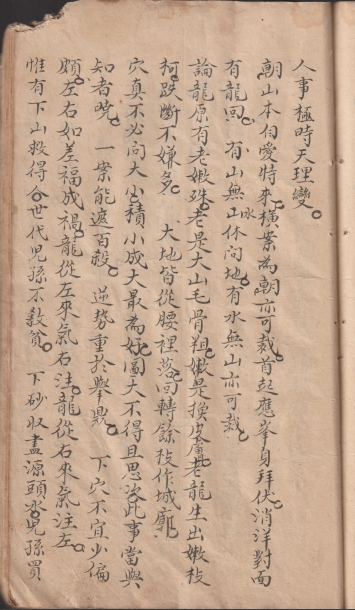 人事極時天理變
朝山本自愛特來橫案為朝亦可裁首起應峯身拜伏消洋對面
有龍囘 有山無水休问地有水無山亦可裁
論龍原有老嫩殊老是大山毛骨粗嫩是換皮膚老龍生出嫩枝
柯跌斷不嫌多 大地皆從腰裡落囘轉餘枝作城廓
穴真不必问大小積小成大最為好圖大不得且思。此事當與
知者咣 一案能遮百殺 逆勢重於舉鼎 下穴不宜少偏
頗左右如差福成禍龍從左來氣右注龍從右來氣注左
惟有下山救得今世代兒孫不教貧 下砂收盡源頭水兒孫買